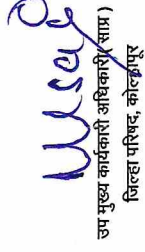 उप मुख्य कार्यकारी अधिकारी( साप्र )
जिल्हा परिषद, कोल्हापूर